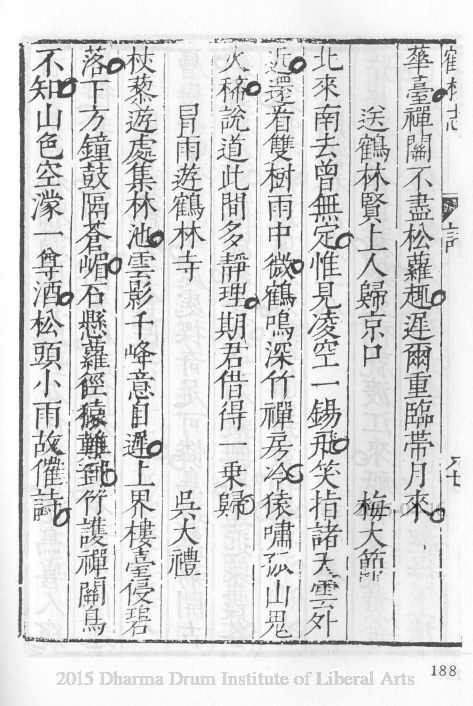 鶴林志 詩
華臺禪關不盡松蘿趣遲爾重臨帶月來
送鶴林賢上人歸京口 梅大節
北來南去曾無定惟見凌空一錫飛笑指諸天雲外
近還看雙樹雨中微鶴鳴深竹禪房冷猿嘯孤山鬼
火稀說道此間多靜理期君借得一乗歸
冒雨遊鶴林寺 吳大禮
杖藜遊處集林池雲影千峰意自遲上界樓臺侵碧
落下方鐘鼓隔蒼嵋石懸蘿徑猿難到竹護禪關鳥
不知山色空濛一尊酒松頭小雨故催詩
188
2015 Dharma Drum Institute of Liberal Arts